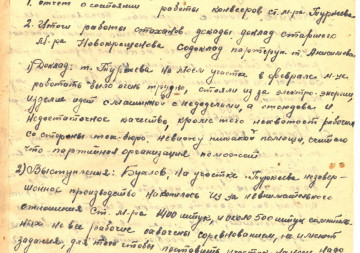 1. Отчет о состоянии работы конвееров ст. м-ра т. Пуржева
2. Итоги работы стаханов. декады доклад старшего
М-ра Новокрещенова Содоклад парторга т. Анисимова
1) Доклад: т. Пуржева На моем участке в феврале м-це
работать было очень трудно, стояли из за электро-энергии
изделие идет с машинкой с недоделками, а отсюдова и
недостаточное качество, кроме того нехватает рабочих
со стороны тех-бюро, невижу никакой помощи, считаю
что партийная организация поможет
2) Выступления: Бухалов. На участке т. Пуржева незавер-
шонной производство накопилось из за невнимательного
отношения ст. м-ра 1400 штук, и около 500 штук сомнитель-
ных не все рабочие охвачены соревнованием, не имеют
задания, для того чтобы поставить участок на ноги надо